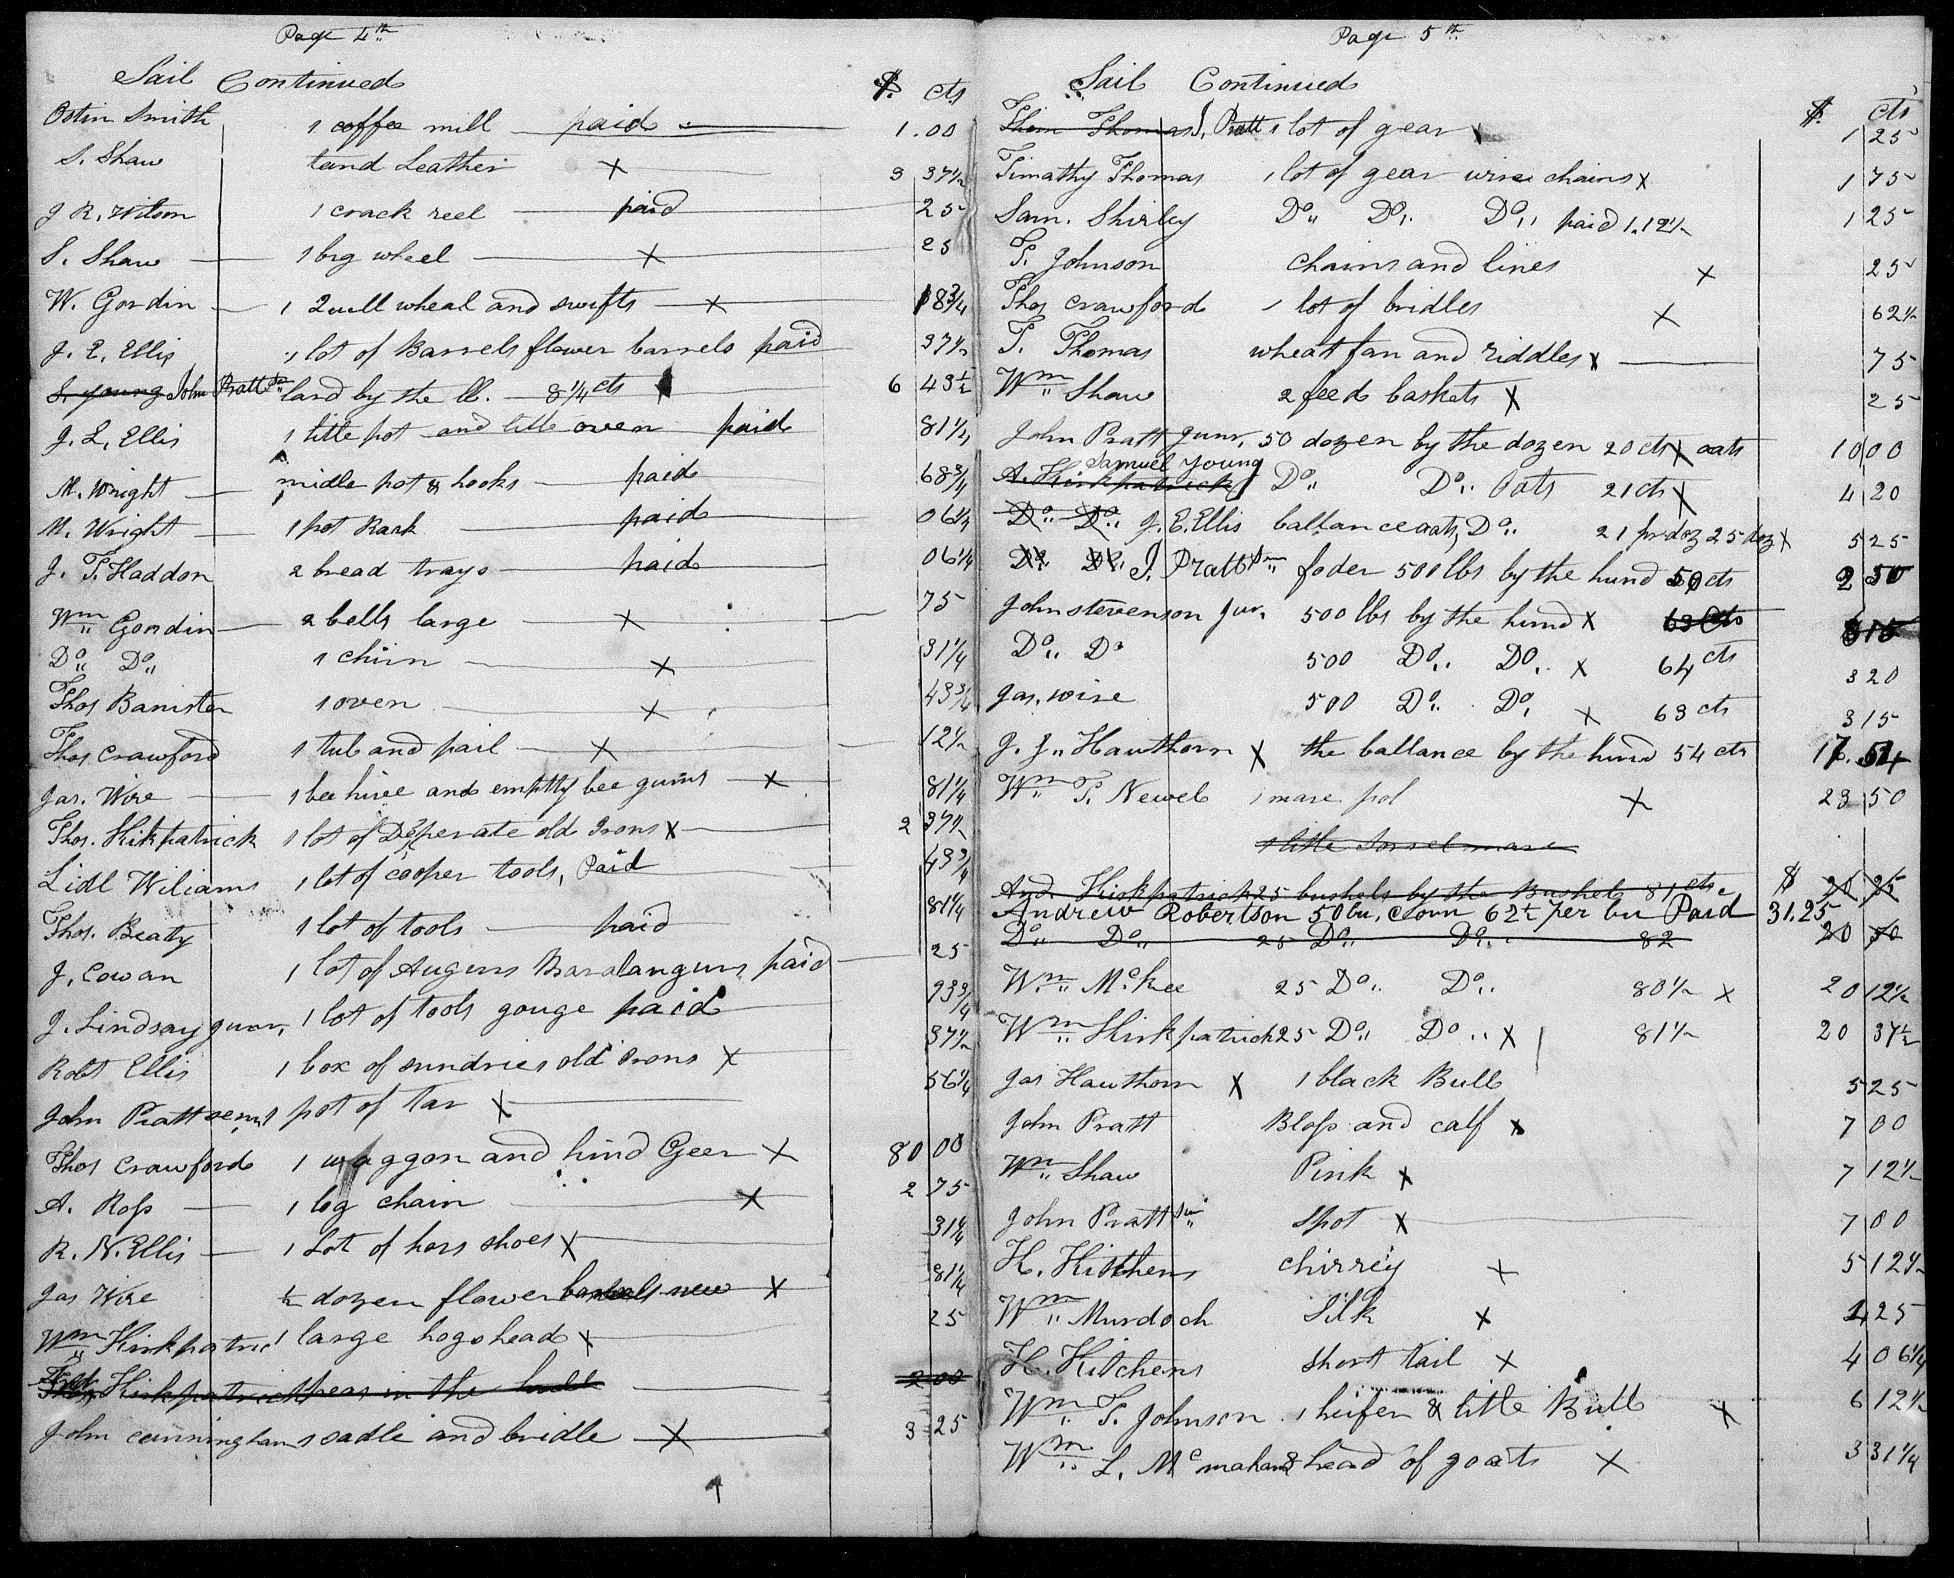 Page 4th
Sail Continued $. cts
Ostin Smith 1 coffee mill paid 1.00
S. Shaw tand Leather X 3 37½
J R. Wilson 1 crack reel paid 25
S. Shaw 1 big wheel X 25
W. Gordin 1 2 wheal and swifts X 18¾
J. E. Ellis 1 lot of Barrels flower barrels paid 37½
S. young John Pratt Sr lard by the lb. 8¼ cts 6 43½
J. E. Ellis 1 little pot and little oven paid 81¼
M. Wright 1 midle pot & hooks paid 68¾
M. Wright 1 pot Rack paid 06¼
J. T. Haddon 2 bread trays paid 06¼
Wm Gordin 2 bells large X 75
Do Do 1 chirn X 31¼
Thos Banister 1 oven X 43¾
Thos Crawford 1 tub and pail X 12½
Jas. Wire 1 bee hive and emptty bee gums X 81¼
Thos. Kirkpatrick 1 lot of Desperate old Irons X 2 37½
Lidl Wiliams 1 lot of cooper tools, Paid 43¾
Thos. Beaty 1 lot of tools paid 81¼
J. Cowan 1 lot of Augurs Baralangurs paid 25
J. Lindsay junr, 1 lot of tools gouge paid 93¾
Robt Ellis 1 box of sundries old Irons X 37½
John Pratt senr 1 pot of tar X 56¼
Thos Crawford 1 waggon and hind Geer X 80 00
A. Ross 1 log chain X 2 75
R. N. Ellis 1 Lot of hors shoes X 31¼
Jas Wire ½ dozen flower barrels new X 81¼
Wm Kirkpatric 1 large hogshead X 25
Kirkpatrick peas in the hull 2 00
John cunningham 1 sadle and bridle X 3 25
Page 5th
Sail Continued $. cts
Thom Thomas J, Pratt 1 lot of gear X 1 25
Timathy Thomas 1 lot of gear wire chains X 1 75
Sam. Shirley Do Do Do paid 1.12½ 1 25
T. Johnson chains and lines X 25
Thos Crawford 1 lot of bridles X 62½
T. Thomas wheat fan and riddles X 75
Wm Shaw 2 feed baskets X 25
John Pratt junr, 50 dozen by the dozen 20 cts X oats 10 00
Samuel Young
A. Kirkpatrick Do Do Oats 21 cts X 4 20
Do Do J. E. Ellis ballance oats, Do 21 pr doz 25 doz X 5 25
Do Do J. Pratt Sr foder 500 lbs by the hund 50 cts 2 50
John stevenson Jur. 500 lbs by the hund X 63 Cts 3 15
Do Do 500 Do Do X 64 cts 3 20
Jas. wire 500 Do Do X 63 cts 3 15
J. J. Hawthorn X the ballance by the hund 54 cts 17. 54
Wm T. Newel 1 mare pol X 23 50
1 little Sorrel mare
And. Kirkpatrick 25 bushels by the Bushels 81 cts. $ 20 25
Andrew Robertson 50 bu. Corn 62½ per bu Paid 31.25
Do Do 25 Do Do 82 20 50
Wm McKee 25 Do Do 80½ X 20 12½
Wm Kirkpatrick 25 Do Do X 81½ 20 37½
Jas Hawthorn X 1 black Bull 5 25
John Pratt Bloss and calf X 7 00
Wm Shaw Pink X 7 12½
John Pratt Sr Spot X 7 00
H. Kitchens chirrey X 5 12½
Wm Murdoch Silk X 4 25
H. Kitchens short tail X 4 06¼
Wm T. Johnson 1 heifer & little Bull X 6 12½
Wm L. Mcmahan 3 head of goats X 3 31¼